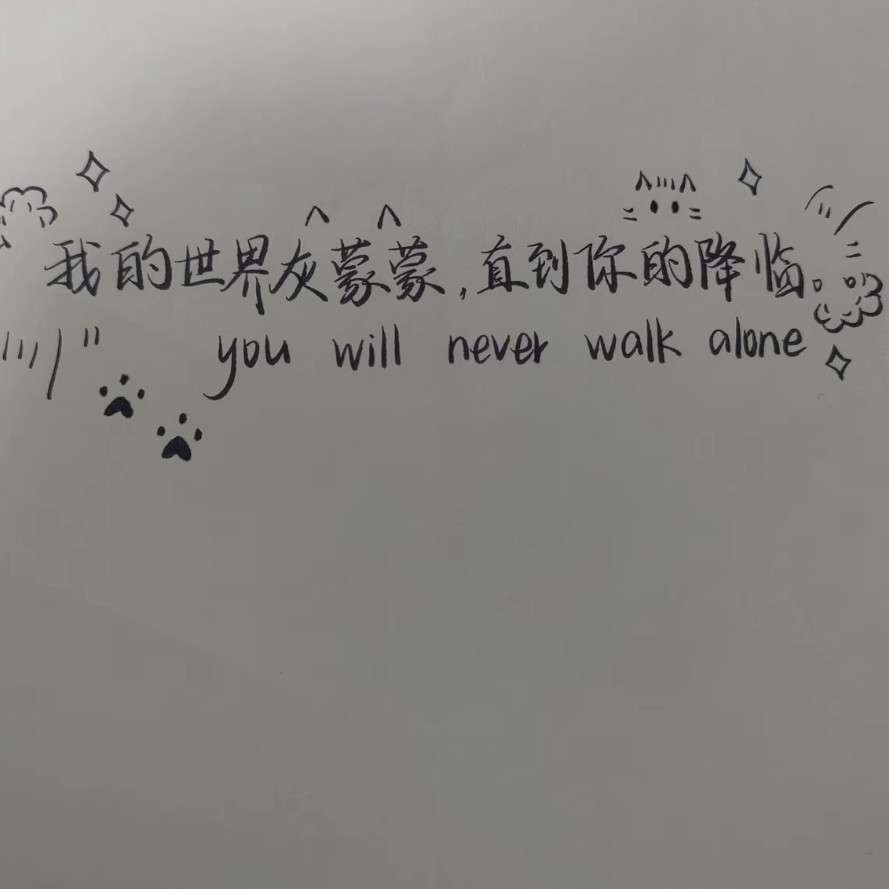 我的世界灰蒙蒙,直到你的降临。
you will never walk alone